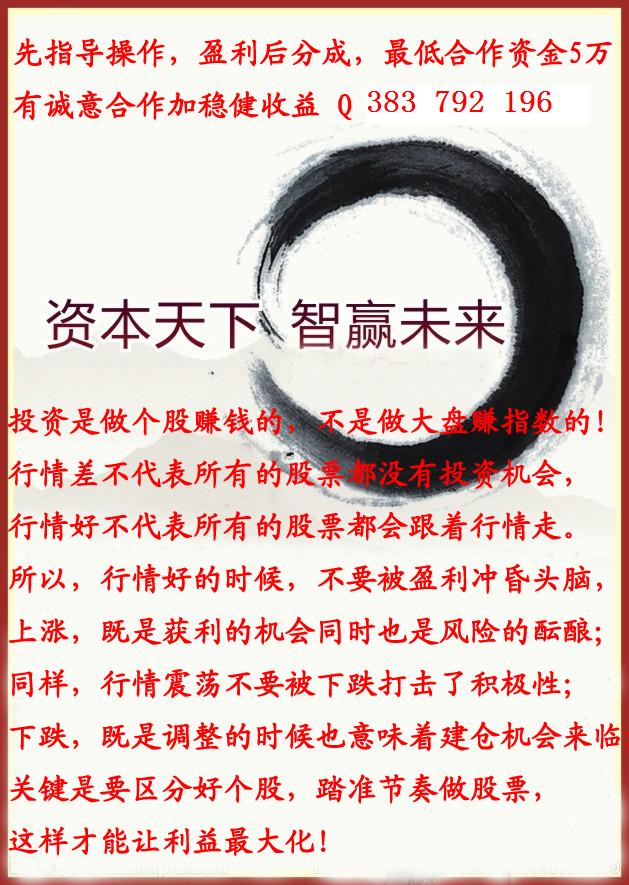 先指导操作，盈利后分成，最低合作资金5万
有诚意合作加稳健收益 Q 383 792 196
资本天下 智赢未来
投资是做个股赚钱的，不是做大盘赚指数的！
行情差不代表所有的股票都没有投资机会，
行情好不代表所有的股票都会跟着行情走。
所以，行情好的时候，不要被盈利冲昏头脑，
上涨，既是获利的机会同时也是风险的酝酿；
同样，行情震荡不要被下跌打击了积极性；
下跌，既是调整的时候也意味着建仓机会来临
关键是要区分好个股，踏准节奏做股票，
这样才能让利益最大化！